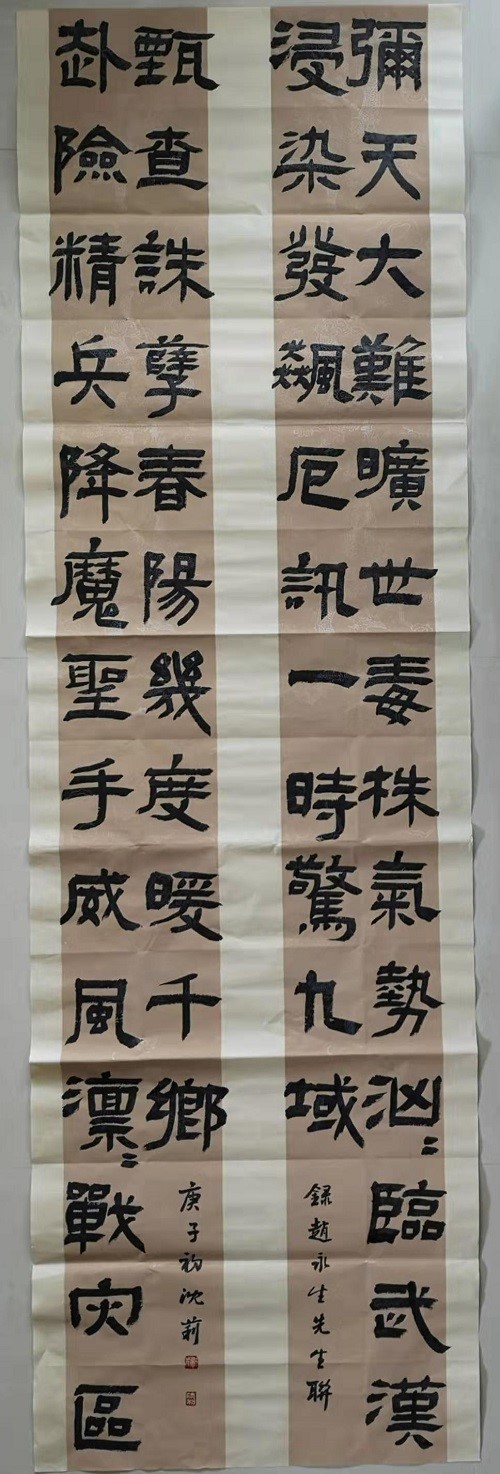 彌天大難曠世毒株氣勢汹〻臨武漢
浸染發飆厄訊一時驚九域
録趙永生先生聯
赴險精兵降魔聖手威風澟〻戰灾區
甄查誅孽春陽幾度暖千鄉
庚子初沈莉